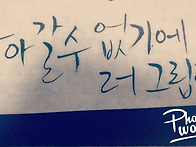 아갈수 없기에
더 그립
Pho
wo